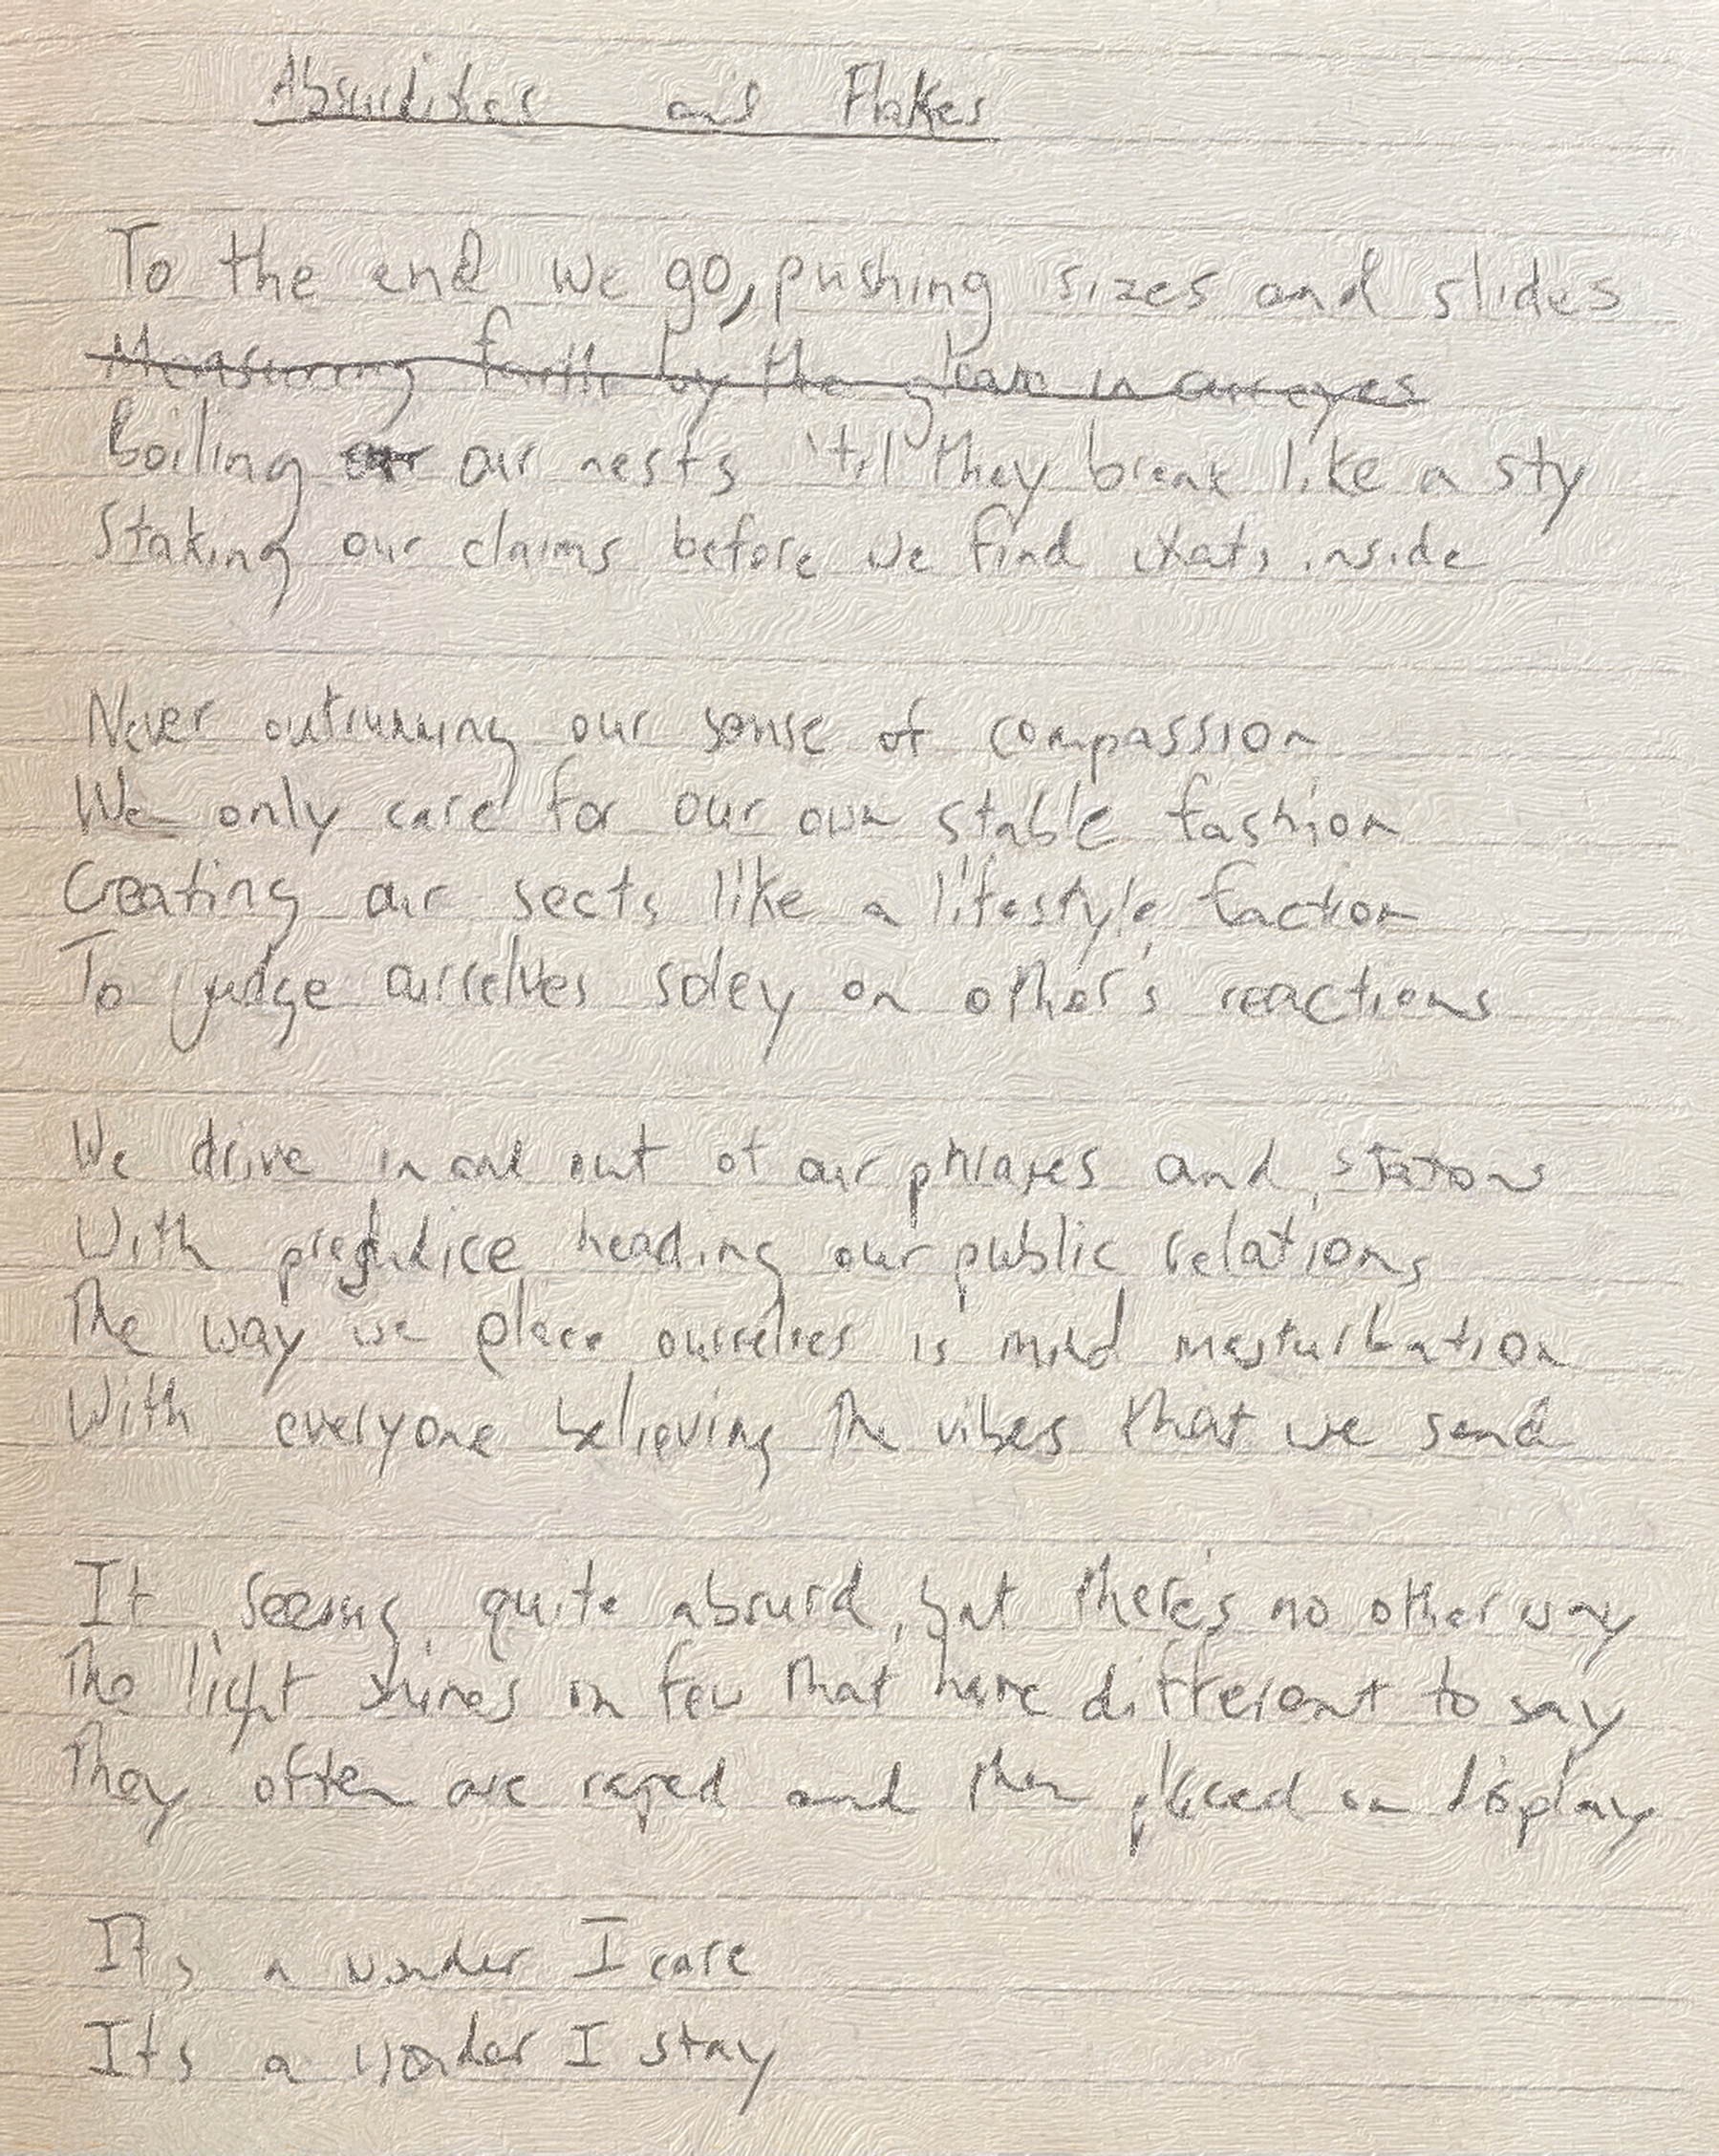 Absurdities and Flakes
To the end we go, pushing sizes and slides
Measuring forth by the gleam in our eyes
Boiling our nests 'til they break like a sty
Staking our claims before we find whats inside
Never outrunning our sense of compassion
We only care for our own stable fashion
Creating our sects like a lifestyle faction
To judge ourselves soley on other's reactions
We drive in and out of our phrases and
With prejudice heading our public relations
The way we place ourselves is mild masturbation
With everyone believing the vibes that we send
It seems quite absurd, but there's no other way
The light shines in few that have different to say
They often are raped and then placed on display
It's a wonder I care
It's a wonder I stay